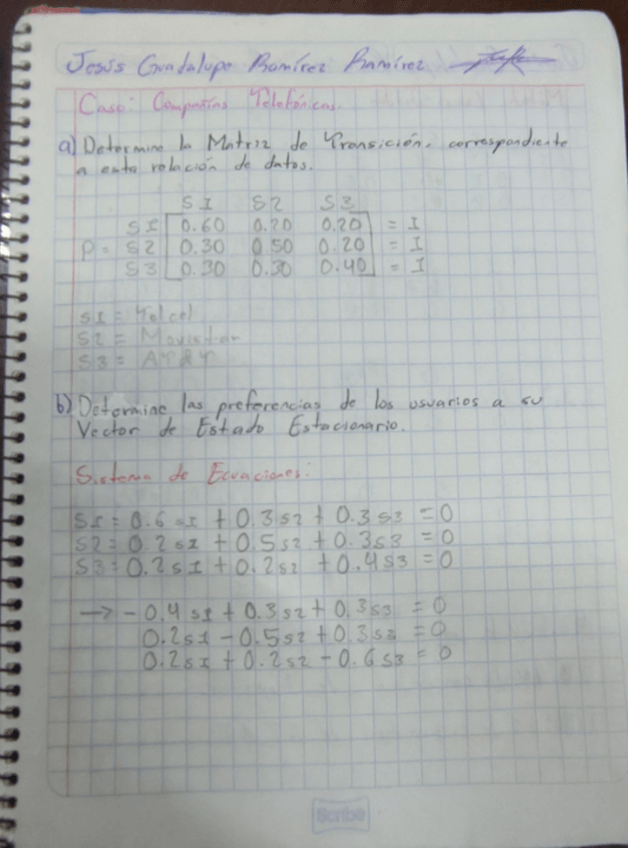 Jesús Guadalupe Ramírez Ramírez
Caso: Compañías Telefónicas.
a) Determine la Matriz de Transición, correspondiente
a esta relación de datos.
SI S2 S3
SI 0.60 0.20 0.20 = I
P = S2 0.30 0.50 0.20 = I
S3 0.30 0.30 0.40 = I
SI = Telcel
S2 = Movistar
S3 = AT&T
b) Determine las preferencias de los usuarios a su
Vector de Estado Estacionario.
Sistema de Ecuaciones:
SI = 0.6 sI + 0.3 s2 + 0.3 s3 = 0
S2 = 0.2 sI + 0.5 s2 + 0.3 s3 = 0
S3 = 0.2 sI + 0.2 s2 + 0.4 s3 = 0
→ - 0.4 sI + 0.3 s2 + 0.3 s3 = 0
0.2 sI - 0.5 s2 + 0.3 s3 = 0
0.2 sI + 0.2 s2 - 0.6 s3 = 0
Scribe